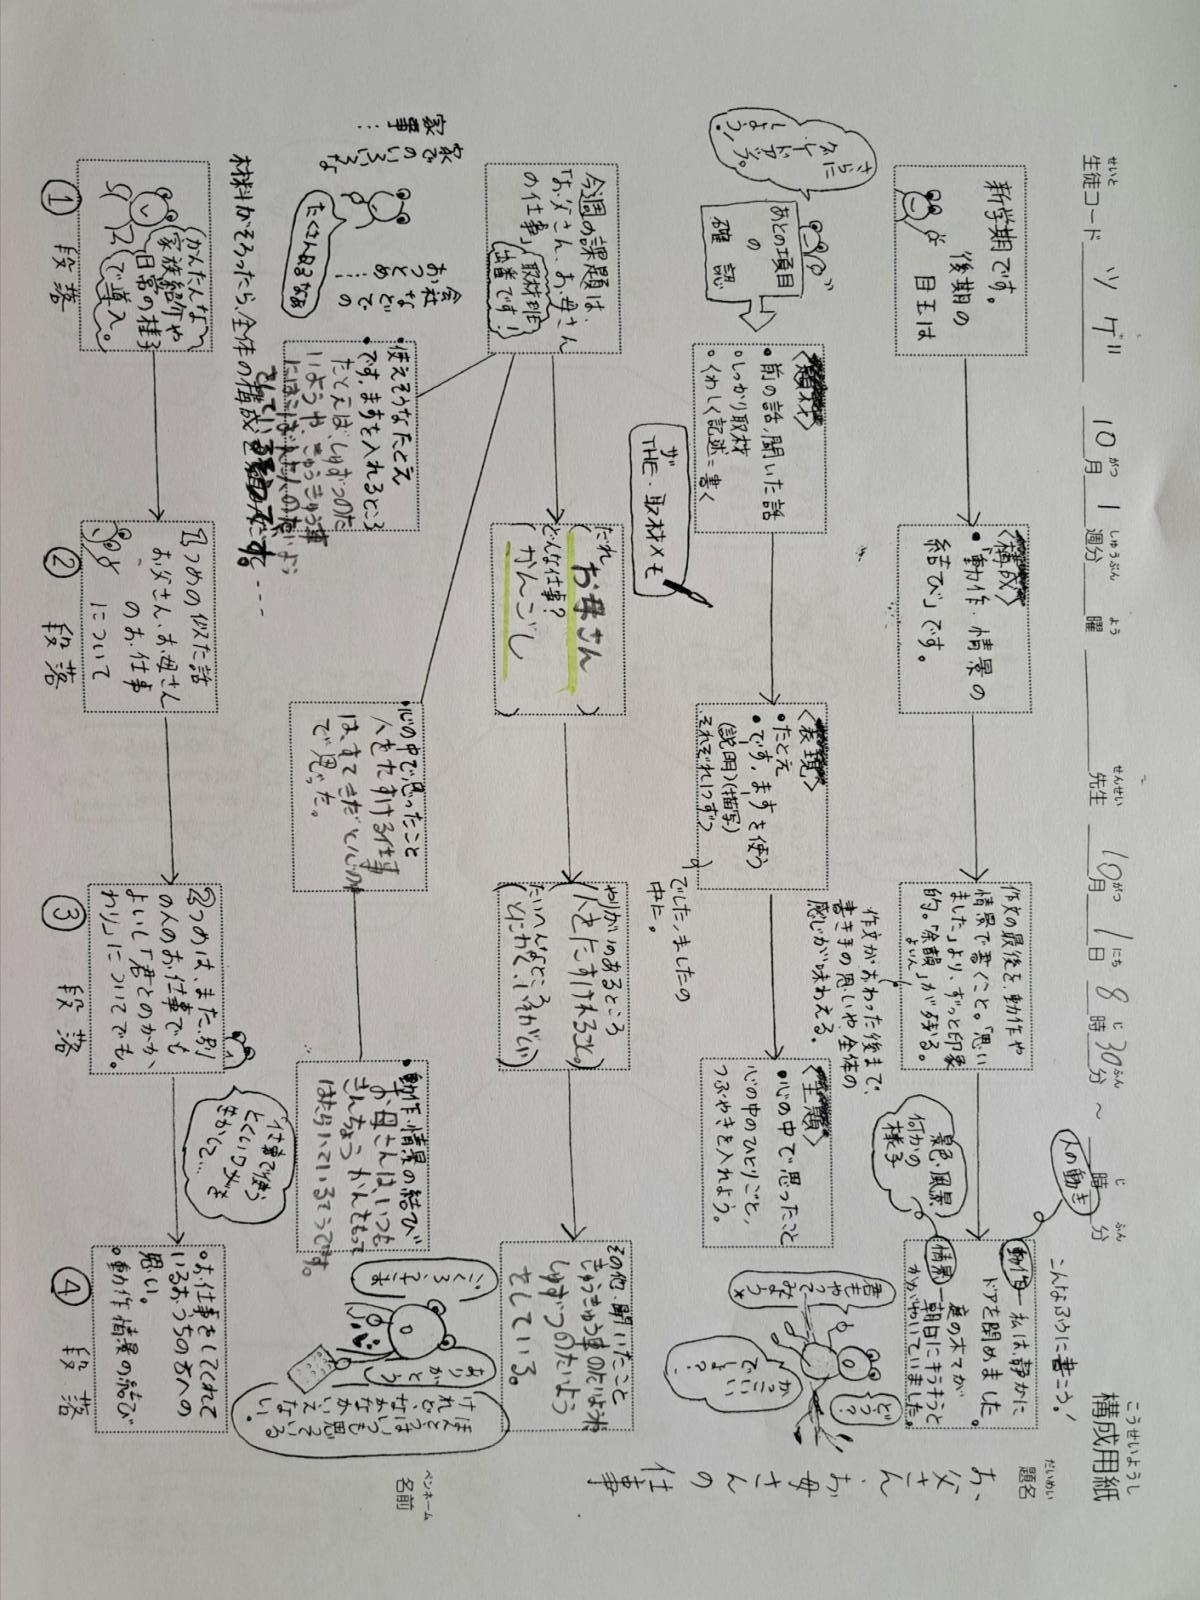 構成用紙
こうせいようし
生徒コード ツゲ 10月1週分 曜 先生 10月1日8時30分～ 時 分
せいと がつ しゅうぶん よう せんせい がつ にち じ ふん じ ふん
題名
だいめい
お父さん・お母さんの仕事
ペンネーム
名前
こんなふうに書こう!
人の動き
新学期です。
後期の
目玉は
〈構成〉
•「動作・情景の
結び」です。
作文の最後を、動作や
情景で書くこと。「思い
ました」より、ずっと印象
的。「余韻」が残る。
よいん
作文がおわった後まで、
書き手の思いや全体の
感じが味わえる。
景色・風景
何かの
様子
動作―私は静かに
ドアを閉めました。
情景―庭の木々が
朝日にキラキラと
かがやいていました。
さらに
グレード
アップ
しよう!
あとの項目
の
確認
〈題材〉
•前の話、聞いた話
•しっかり取材
•くわしく記述=書く
〈表現〉
•たとえ
•です、ますを使う
(説明)(描写)
それぞれ1つずつ
でした、ましたの
中に。
〈主題〉
•心の中で思ったこと
心の中のひとりごと、
つぶやきを入れよう。
君も
やって
みよう
どう?
かっこいい
でしょ?
ザ
THE・取材メモ
今週の課題は、
「お父さん、お母さん
の仕事」
取材班
出番です!
だれ
お母さん
どんな仕事?
かんごし
やりがいのあるところ
(人をたすけれること。)
たいへんなところ
(とにかく、いそがしい)
その他、聞いたこと
きゅうきゅう車のたいようや
しゅずつのたいよう
をしている。
家での
いろいろな
家事…
会社
などでの
おつとめ…
たくさんあるなあ
•使えそうなたとえ
です、ますを入れるところ
たとえば、しゅずつのた
いようや、きゅうきゅう車
•心の中で思ったこと
人をたすける仕事
は、すてきだと心の中
で思った。
•動作、情景の結び
お母さんは、いつも
きんちょうかんをもって
はたらいているそうです。
ごくろうさま
ありがとう
ほんとうは
いつも思って
いるけれど、
なかなか
いえない。
材料がそろったら、全体の構成を
①段落
かんたんな
家族紹介や
日常の様子
で導入。
②段落
1つめの似た話
お父さん、お母さん
のお仕事
について
③段落
2つめは、また、別
の人のお仕事でも
よいし「君とのかか
わり」についてでも。
仕事で使う
とくいワザを
きかして…
④段落
•お仕事をしてくれて
いるおうちの方への
思い。
•動作、情景の結び